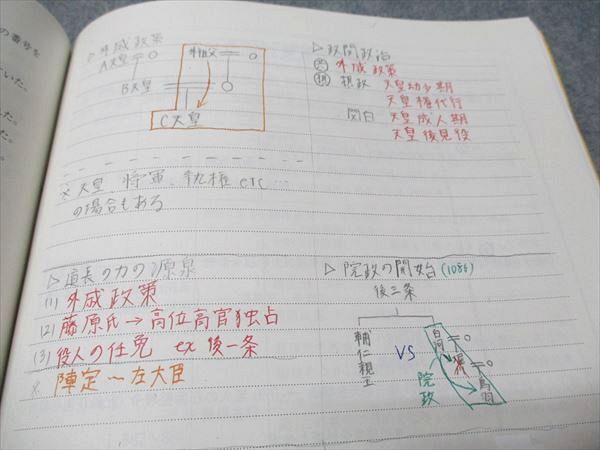 の番号を
いた。
た。
た。
▷外戚政策
A天皇 ○
外祖父 ○
B天皇 ○
C天皇
※天皇、将軍、執権 etc…
の場合もある
▷道長の力の源泉
(1) 外戚政策
(2) 藤原氏→高位高官独占
(3) 役人の任免 ex 後一条
※ 陣定〜左大臣
▷摂関政治
外戚政策
摂政 天皇幼少期
天皇権代行
関白 天皇成人期
天皇後見役
▷院政の開始 (1086)
後三条
輔仁親王
VS
白河 ○
堀河 ○
鳥羽
院政